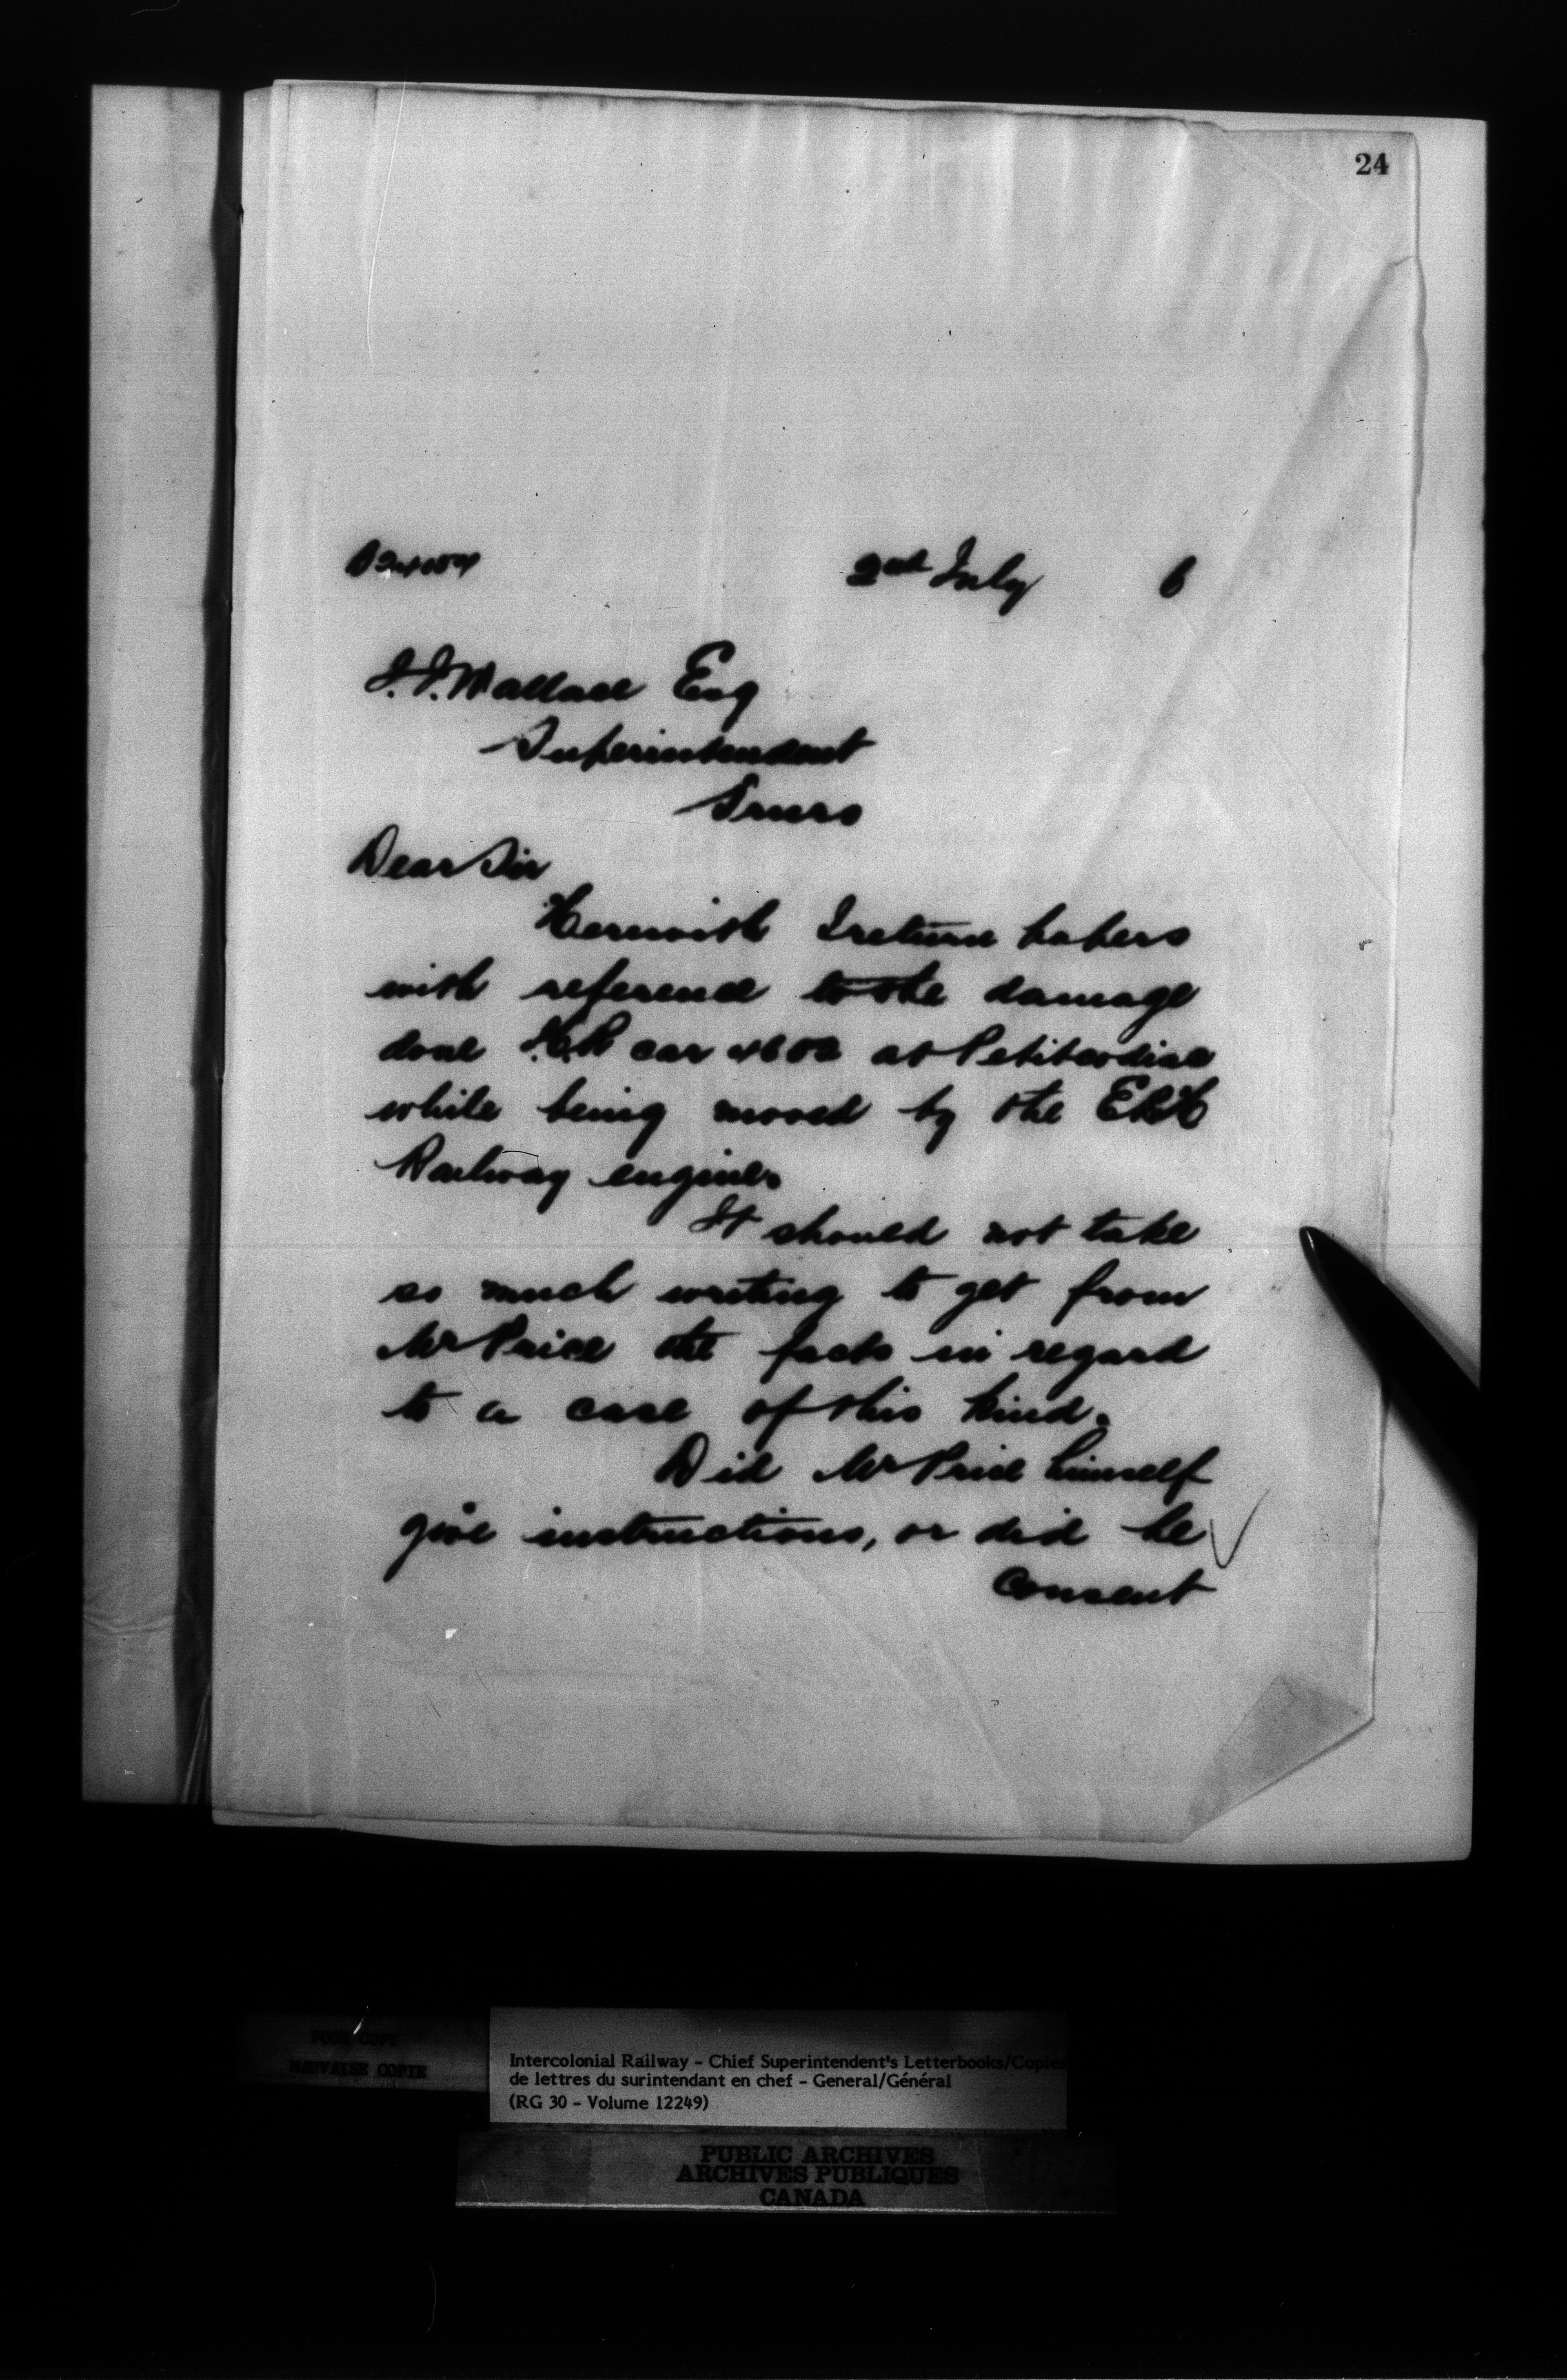 24
2nd July 6
J. J. Wallace Esq
Superintendent
Truro
Dear Sir
Herewith I return papers
with reference to the damage
done car at Petitcodiac
while being moved by the E&H
Railway engine.
It should not take
so much writing to get from
Mr Price the facts in regard
to a case of this kind.
Did Mr Price himself
give instructions, or did he
consent
POOR COPY
MAUVAISE COPIE
Intercolonial Railway - Chief Superintendent's Letterbooks/Copies
de lettres du surintendant en chef - General/Général
(RG 30 - Volume 12249)
PUBLIC ARCHIVES
ARCHIVES PUBLIQUES
CANADA